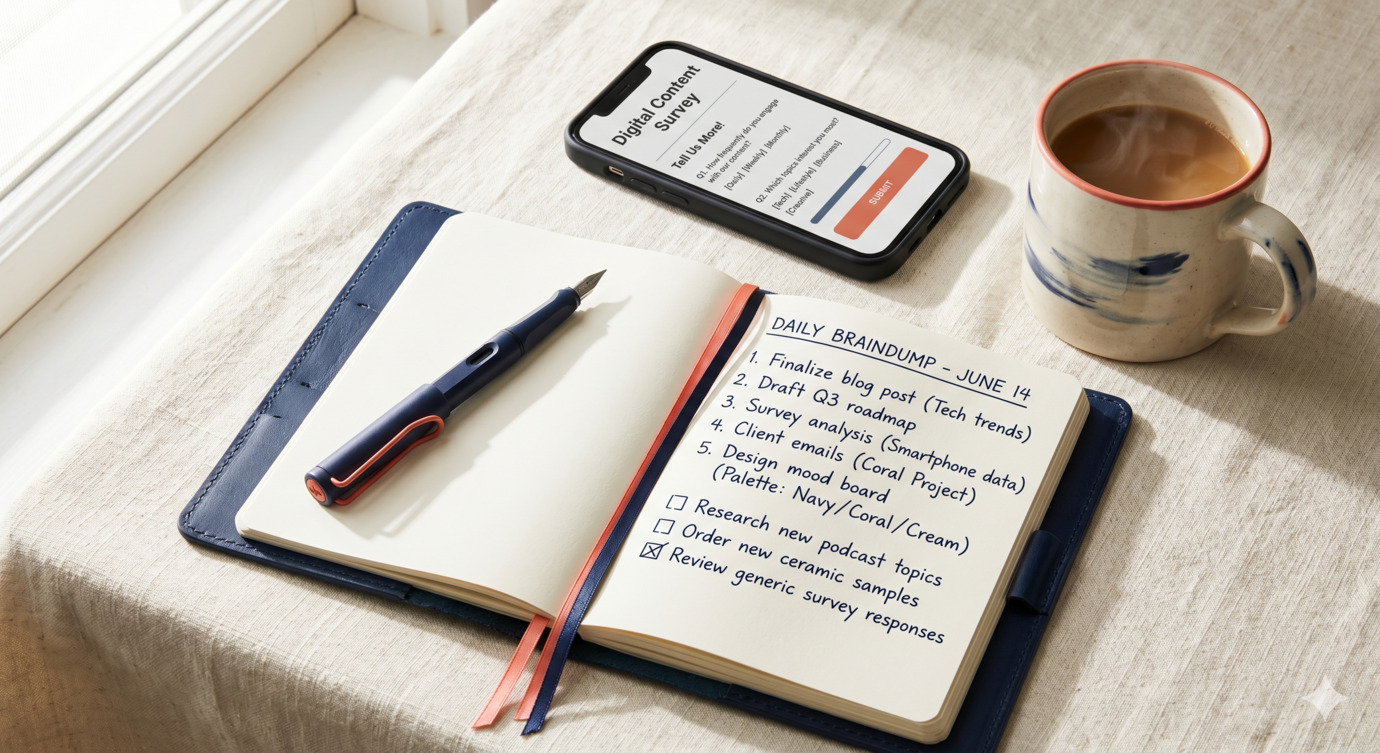 Digital Content
Survey
Tell Us More!
Q1. How frequently do you engage
with our content?
[Daily] [Weekly] [Monthly]
Q2. Which topics interest you most?
[Tech] [Lifestyle] [Business]
[Creative]
SUBMIT
DAILY BRAINDUMP - JUNE 14
1. Finalize blog post (Tech trends)
2. Draft Q3 roadmap
3. Survey analysis (Smartphone data)
4. Client emails (Coral Project)
5. Design mood board
(Palette: Navy/Coral/Cream)
☐ Research new podcast topics
☐ Order new ceramic samples
☒ Review generic survey responses